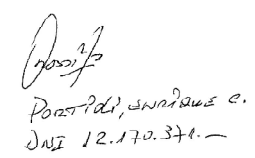 PORTIDI, ENRIQUE C.
DNI 12.170.371.—